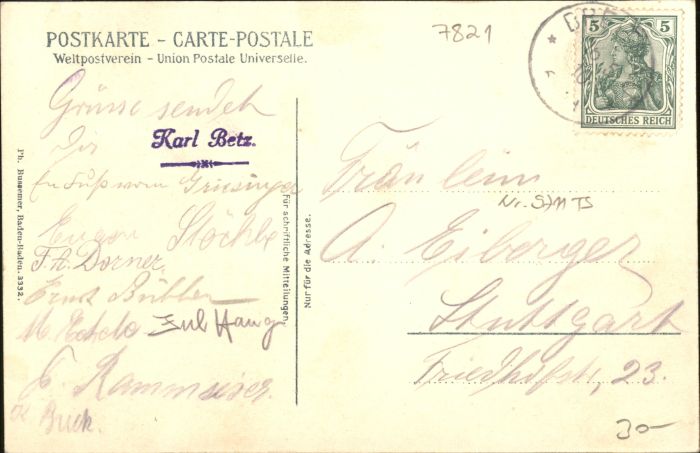 POSTKARTE – CARTE-POSTALE
Weltpostverein – Union Postale Universelle.
7821
5 5
DEUTSCHES REICH
Grüsse sendet
Dir
Karl Betz.
Griesinger
Eugen Stöckle
F. A. Dorner.
Ernst
Jul Haug
Buck.
Ph. Bussemer, Baden-Baden. 3332.
Für schriftliche Mitteilungen.
Nur für die Adresse.
Fräulein
A. Eiberger
Stuttgart
Friedhofstr. 23.
30-